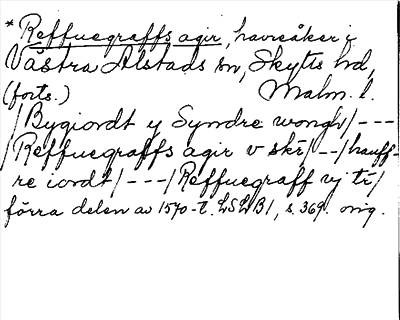 * Reffuegraffs agir, havreåker i
Västra Alstads sn, Skytts hd,
(forts.) Malm. l.
/Bygiordt y Syndre wongh/---
/Reffuegraffs agir v skr/--/hauff-
re iordt/---/Reffuegraff vj tr/
förra delen av 1570-t. LSLB1, s. 369. orig.